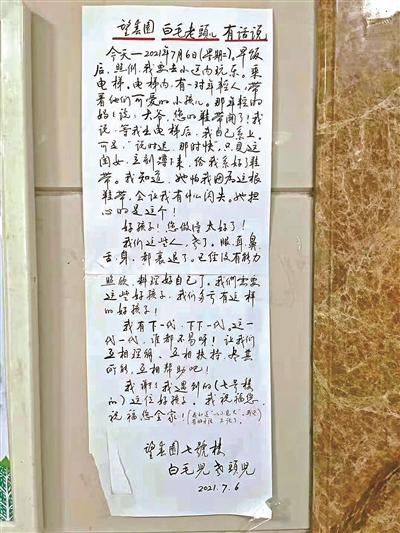 望春園 白毛老頭儿 有话说
今天—2021年7月6日(星期二)。早饭
后,照例,我要去小区内玩乐。乘
电梯。电梯内,有一对年轻人,带
着他们可爱的小孩儿。那年轻的
妈妈说:大爷,您的鞋带开了!我
说,等我出电梯后,我自己系上。
可是,说时迟,那时快,只见这
闺女,立刻蹲下来,给我系好了鞋
带。我知道,她怕我因为这根
鞋带,会让我有什么闪失。她担
心的是这个!
好孩子!您做得太好了!
我们这些人,老了。眼、耳、鼻
舌、身,都衰退了。已经没有能力
照顾,料理好自己了。我们需要
这些好孩子,我们多亏有这样
的好孩子!
我有下一代,下下一代。这一
代一代,谁都不易呀!让我们
互相理解,互相扶持,尽其
所能,互相帮助吧!
我谢谢我遇到的(七号楼
的)这位好孩子。我祝福您,
祝福您全家!
望春園七號楼
白毛兒老頭兒
2021.7.6